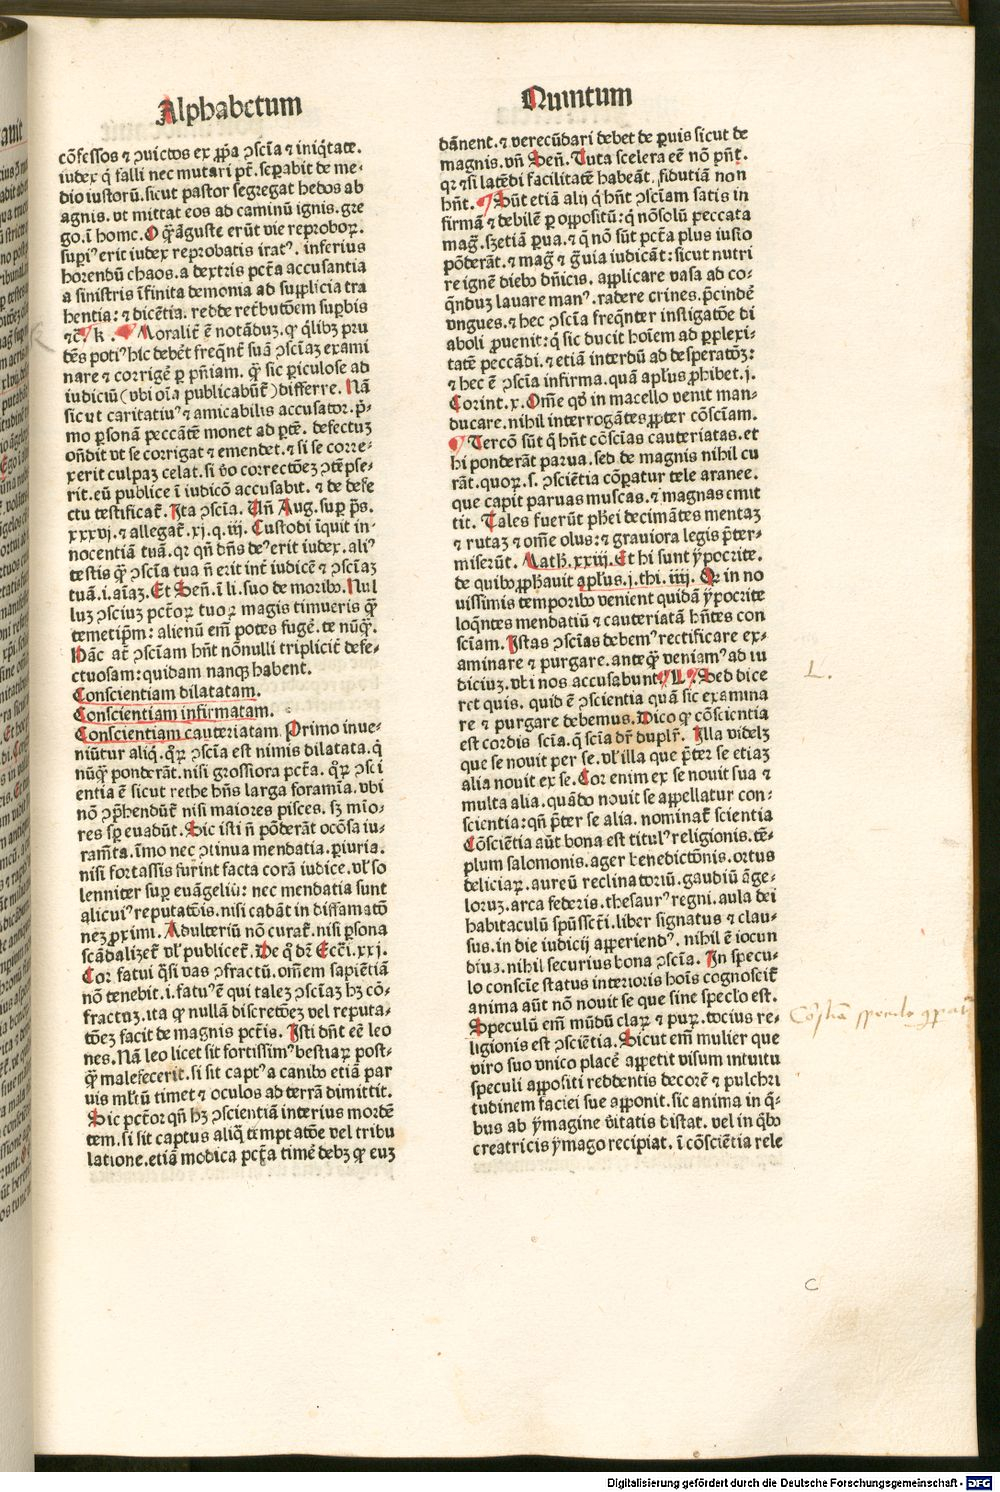 Alphabetum
cōfessos ⁊ ꝯuictos ex ꝓp̄a ꝯsciā ⁊ iniq̄tate.
iudex q̄ falli nec mutari pt̄. seꝑabit de me-
dio iustorū. sicut pastor segregat hedos ab
agnis. vt mittat eos ad caminū ignis. gre
go. ī home. O q̄ꝫ āguste erūt vie reproboꝝ.
supiꝰ erit iudex reprobatis iratꝰ. inferius
horendū chaos. a dextris pct̄a accusantia
a sinistris īfinita demonia ad supplicia tra
hentia: ⁊ dicētia. redde ret̄butōem suꝑbis
⁊c̄ k . Moralit̄ ē notāduꝫ. ꝙ q̄libꝫ pru
dēs potiꝰ hic debet̄ freq̄nt̄ suā ꝯsciāꝫ exami
nare ⁊ corrigē ꝑ pn̄iam. q̄ꝫ sic ꝑiculose ad
iudiciū (vbi oīa publicabūt̄) differre. Nā
sicut caritatiuꝰ ⁊ amicabilis accusator. p̄-
mo ꝑsonā peccātē monet ad ꝑtē. defectuꝫ
on̄dit vt se corrigat ⁊ emendet. ⁊ si se corre-
xerit culpaꝫ celat. si v̄o correctōeꝫ ꝯtēpse-
rit. eū publice ī iudicō accusabit. ⁊ de defe
ctu testificat̄. Ita ꝯsciā. Vn̄ Aug. suꝑ pˢ.
xxxvj. ⁊ allegat̄. xj. q. iij. Custodi īquit in-
nocentiā tuā. qꝛ qn̄ dn̄s deꝰ erit iudex. aliꝰ
testis q̄ꝫ ꝯsciā tua n̄ erit int̄ iudicē ⁊ ꝯsciāꝫ
tuā. i. aīaꝫ. Et Sen̄. ī li. suo de moribꝰ. Nul
luꝫ ꝯsciuꝫ pctōꝝ tuoꝝ magis timueris q̄ꝫ
temetip̄m: alienū em̄ potes fugē. te nūq̄ꝫ.
Hāc at̄ ꝯsciam hn̄t nōnulli triplicit̄ defe-
ctuosam: quidam nanqꝫ habent.
Conscientiam dilatatam.
Conscientiam infirmatam.
Conscientiam cauteriatam Primo inue-
niūtur aliq̄. q̄ꝝ ꝯsciā est nimis dilatata. q̄
nūq̄ꝫ ponderāt. nisi grossiora pct̄a. q̄ꝝ ꝯsci
entia ē sicut rethe hn̄s larga foramīa. vbi
nō ꝯp̄hendūt̄ nisi maiores pisces. sꝫ mīo-
res sꝑ euadūt. Sic isti n̄ pōderāt ocōsa iu-
ram̄ta. īmo nec ꝯtinua mendatia. ꝑiuria.
nisi fortassis furint facta corā iudice. vl̓ so
lenniter suꝑ euāgeliū: nec mendatia sunt
alicuiꝰ reputatōis. nisi cadāt in diffamatō
neꝫ ꝓximi. Adulteriū nō curāt. nisi ꝑsona
scādalizet̄ vl̓ publicet̄. De q̄ dr̄ Ecc̄i. xxj.
Cor fatui q̄si vas ꝯfractū. om̄em sapiētiā
nō tenebit. i. fatuꝰ ē qui taleꝫ ꝯsciāꝫ hꝫ cō-
fractuꝫ. ita ꝙ nullā discretōeꝫ vel reputa-
tōeꝫ facit de magnis pct̄is. Isti dn̄t eē leo
nes. Nā leo licet sit fortissimꝰ bestiaꝝ post-
q̄ꝫ malefecerit. si sit captꝰ a canibꝰ etiā par
uis ml̓tū timet ⁊ oculos ad terrā dimittit.
Sic pctōr qn̄ hꝫ ꝯscientiā interius mordē
tem. si sit captus aliq̄ tēmptatōe vel tribu
latione. etiā modica pct̄a timē debꝫ ꝙ euꝫ
Quintum
dānent. ⁊ verecūdari debet de ꝑuis sicut de
magnis. vn̄ Sen̄. Tuta scelera eē nō pn̄t.
qꝛ ⁊si latēdi facilitatē habeāt. fidutiā non
hn̄t. Sūt etiā alij q̄ hn̄t ꝯsciam satis in
firmā ⁊ debilē ꝑ oppositū: q̄ nōsolū peccata
maḡ. sꝫetiā ꝑua. ⁊ q̄ nō sūt pct̄a plus iusto
pōderāt. ⁊ maḡ ⁊ g̈uia iudicāt: sicut nutri
re ignē diebꝰ dn̄icis. applicare vasa ad co-
q̄nduꝫ lauare manꝰ. radere crines. p̄cindē
vngues. ⁊ hec ꝯsciā freq̄nter instigatōe di
aboli ꝓuenit: q̄ sic ducit hoīem ad ꝑplexi-
tatē peccādi. ⁊ etiā interdū ad desperatōꝫ:
⁊ hec ē ꝯsciā infirma. quā apl̓us ꝓhibet. j.
Corint. x. Om̄e qd̓ in macello venit man-
ducare. nihil interrogātes ꝓpter cōsciam.
Tercō sūt q̄ hn̄t cōsciās cauteriatas. et
hi ponderāt parua. sed de magnis nihil cu
rāt. quoꝝ. s. ꝯsciētia cōparatur tele aranee.
que capit paruas muscas. ⁊ magnas emit
tit. Tales fuerūt ph̓ei decimātes mentaꝫ
⁊ rutaꝫ ⁊ om̄e olus: ⁊ grauiora legis p̄ter-
miserūt. Math̓. xxiij. Et hi sunt ypocrite.
de quibꝰ ꝓph̓auit apl̓us. j. thi. iiij. Qꝛ in no
uissimis temporibꝰ venient quidā ypocrite
loq̄ntes mendatiū ⁊ cauteriatā hn̄tes con
sciam. Istas ꝯsciās debemꝰ rectificare ex-
aminare ⁊ purgare. anteq̄ꝫ veniamꝰ ad iu
diciuꝫ. vbi nos accusabunt L Sed dice
ret quis. quid ē ꝯscientia quā sic examina
re ⁊ purgare debemus. Dico ꝙ cōscientia
est cordis scīa. q̄ scīa dr̄ duplr̄. Illa videlꝫ
que se nouit per se. vl̓ illa que p̄ter se etiaꝫ
alia nouit ex se. Cor enim ex se nouit sua ⁊
multa alia. quādo nouit se appellatur con-
scientia: qn̄ p̄ter se alia. nominat̄ scientia
Cōsciētia aūt bona est titulꝰ religionis. tē-
plum salomonis. ager benedictōnis. ortus
deliciaꝝ. aureū reclinatoriū. gaudiū āge-
loruꝫ. arca federis. thesaurꝰ regni. aula dei
habitaculū spūsscti. liber signatus ⁊ clau-
sus. in die iudicij apperiendꝰ. nihil ē iocun
diuꝫ. nihil securius bona ꝯsciā. In specu-
lo conscīe status interioris hoīs cognoscit̄
anima aūt nō nouit se que sine spec̄lo est.
Speculū em̄ mūdū claꝝ ⁊ puꝝ. tocius re-
ligionis est ꝯsciētia. Sicut em̄ mulier que
viro suo vnico placē appetit visum intuitu
speculi appositi reddentis decorē ⁊ pulchri
tudinem faciei sue apponit. sic anima in q̄-
bus ab ymagine v̄itatis distat. vel in q̄bꝰ
creatricis ymago recipiat. ī cōsciētia rele
L.
c
Digitalisierung gefördert durch die Deutsche Forschungsgemeinschaft - DFG